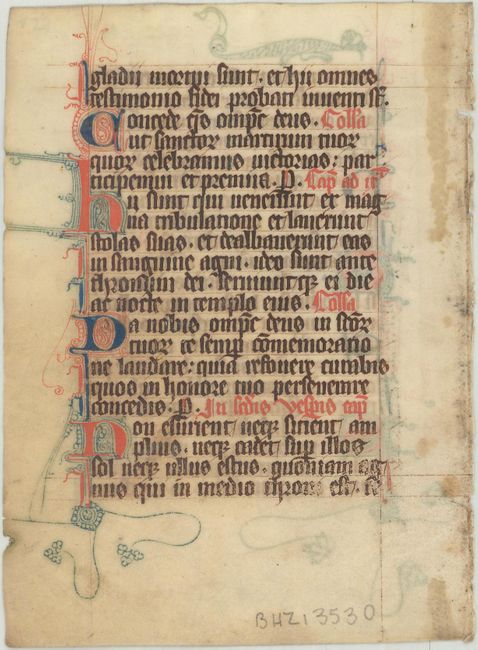 gladii mortui sunt. et hij omnes
testimonio fidei probati inventi st̄.
Concede qs̄ omp̄c deus. Collā
ut sanctor martirum tuor
quor celebramus victorias: par
ticipemur et premiia. P. Cap̄ ad
Hii sunt qui venerunt ex mag
na tribulatione et laverunt
stolas suas. et dealbaverunt eas
in sanguine agni. ideo sunt ante
thronum dei. serviunt ei die
ac nocte in templo eius. Collā
Da nobis omp̄c deus in sc̄or
tuor te semp̄ cōmemoratio
ne laudare: quia refovere curabis
quos in honore tuo perseverare
concedis: P. In sc̄dis vesp̄is cap̄
Non esurient neq̄ sitient am
plius. neq̄ cadet sup̄ illos
sol neq̄ ullus estus. quoniam ag
nus qui in medio throni est.
BHZ13530